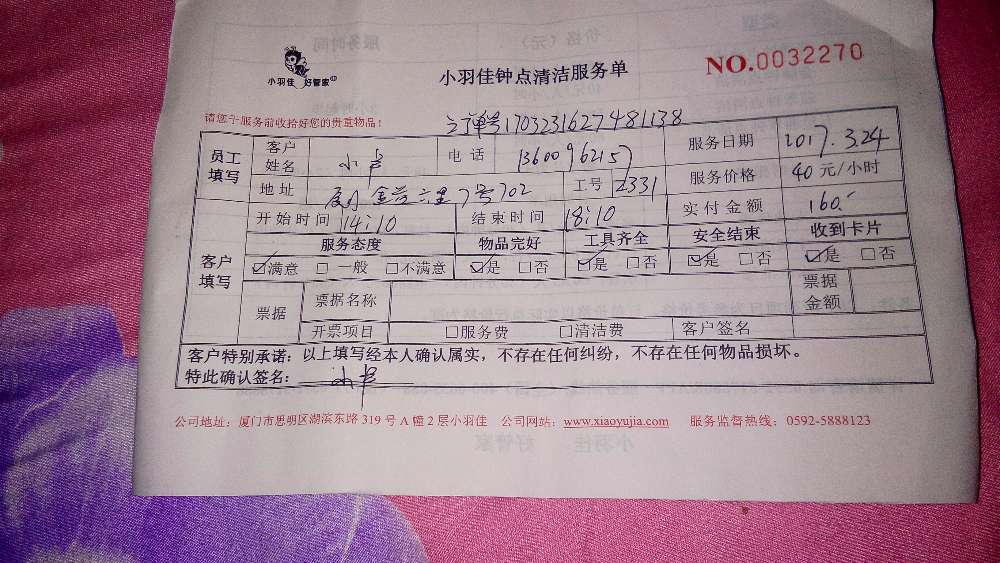 小羽佳 好管家
小羽佳钟点清洁服务单
NO.0032270
请您于服务前收拾好您的贵重物品!
订单号1703231627481138
员工填写 客户姓名 电话 13600962157 服务日期 2017.3.24
地址 2331 工号 服务价格 40元/小时
开始时间 14:10 结束时间 18:10 实付金额 160.-
客户填写 服务态度 物品完好 工具齐全 安全结束 收到卡片
☑满意 □一般 □不满意 ☑是 □否 ☑是 □否 ☑是 □否 ☑是 □否
票据 票据名称 票据金额
开票项目 □服务费 □清洁费 客户签名
客户特别承诺:以上填写经本人确认属实,不存在任何纠纷,不存在任何物品损坏。
特此确认签名:
公司地址:厦门市思明区湖滨东路 319 号 A 幢 2 层小羽佳 公司网站:www.xiaoyujia.com 服务监督热线:0592-5888123